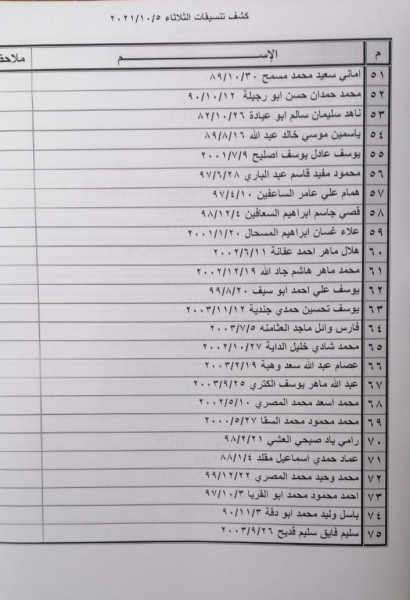 كشف تنسيقات الثلاثاء ٢٠٢١/١٠/٥
م الإســـــم ملاحظ
٥١ اماني سعيد محمد مسمح ٨٩/١٠/٣٠
٥٢ محمد حمدان حسن ابو رجيلة ٩٠/١٠/١٢
٥٣ ناهد سليمان سالم ابو عيادة ٨٢/١٠/٢٦
٥٤ ياسمين موسي خالد عبد الله ٨٩/٨/١٦
٥٥ يوسف عادل يوسف اصليح ٢٠٠١/٧/٩
٥٦ محمود مفيد قاسم عبد الباري ٩٧/٦/٢٨
٥٧ همام علي عامر الساعفين ٩٧/٤/١٠
٥٨ قصي جاسم ابراهيم السعافين ٩٨/١٢/٤
٥٩ علاء غسان ابراهيم المسحال ٢٠٠١/١/٢٠
٦٠ هلال ماهر احمد عفانة ٢٠٠٢/٦/١١
٦١ محمد ماهر هاشم جاد الله ٢٠٠٢/١٢/١٩
٦٢ يوسف علي احمد ابو سيف ٩٩/٨/٢٠
٦٣ يوسف تحسين حمدي جندية ٢٠٠٣/١١/١٢
٦٤ فارس وائل ماجد العثامنه ٢٠٠٣/٧/٥
٦٥ محمد شادي خليل الداية ٢٠٠٢/١٠/٢٧
٦٦ عصام عبد الله سعد وهبة ٢٠٠٣/٢/١٩
٦٧ عبد الله ماهر يوسف الكتري ٢٠٠٣/٩/٢٥
٦٨ محمد اسعد محمد المصري ٢٠٠٢/٥/١٠
٦٩ محمد محمود محمد السقا ٢٠٠٠/٥/٢٧
٧٠ رامي ياد صبحي العشي ٩٨/٢/٢١
٧١ عماد حمدي اسماعيل مقلد ٨٨/١/٤
٧٢ محمد وحيد محمد المصري ٩٩/١٢/٢٢
٧٣ احمد محمود محمد ابو القرايا ٩٧/١٠/٣
٧٤ باسل وليد محمد ابو دقة ٩٠/١١/٣
٧٥ سليم فايق سليم قديح ٢٠٠٣/٩/٢٦